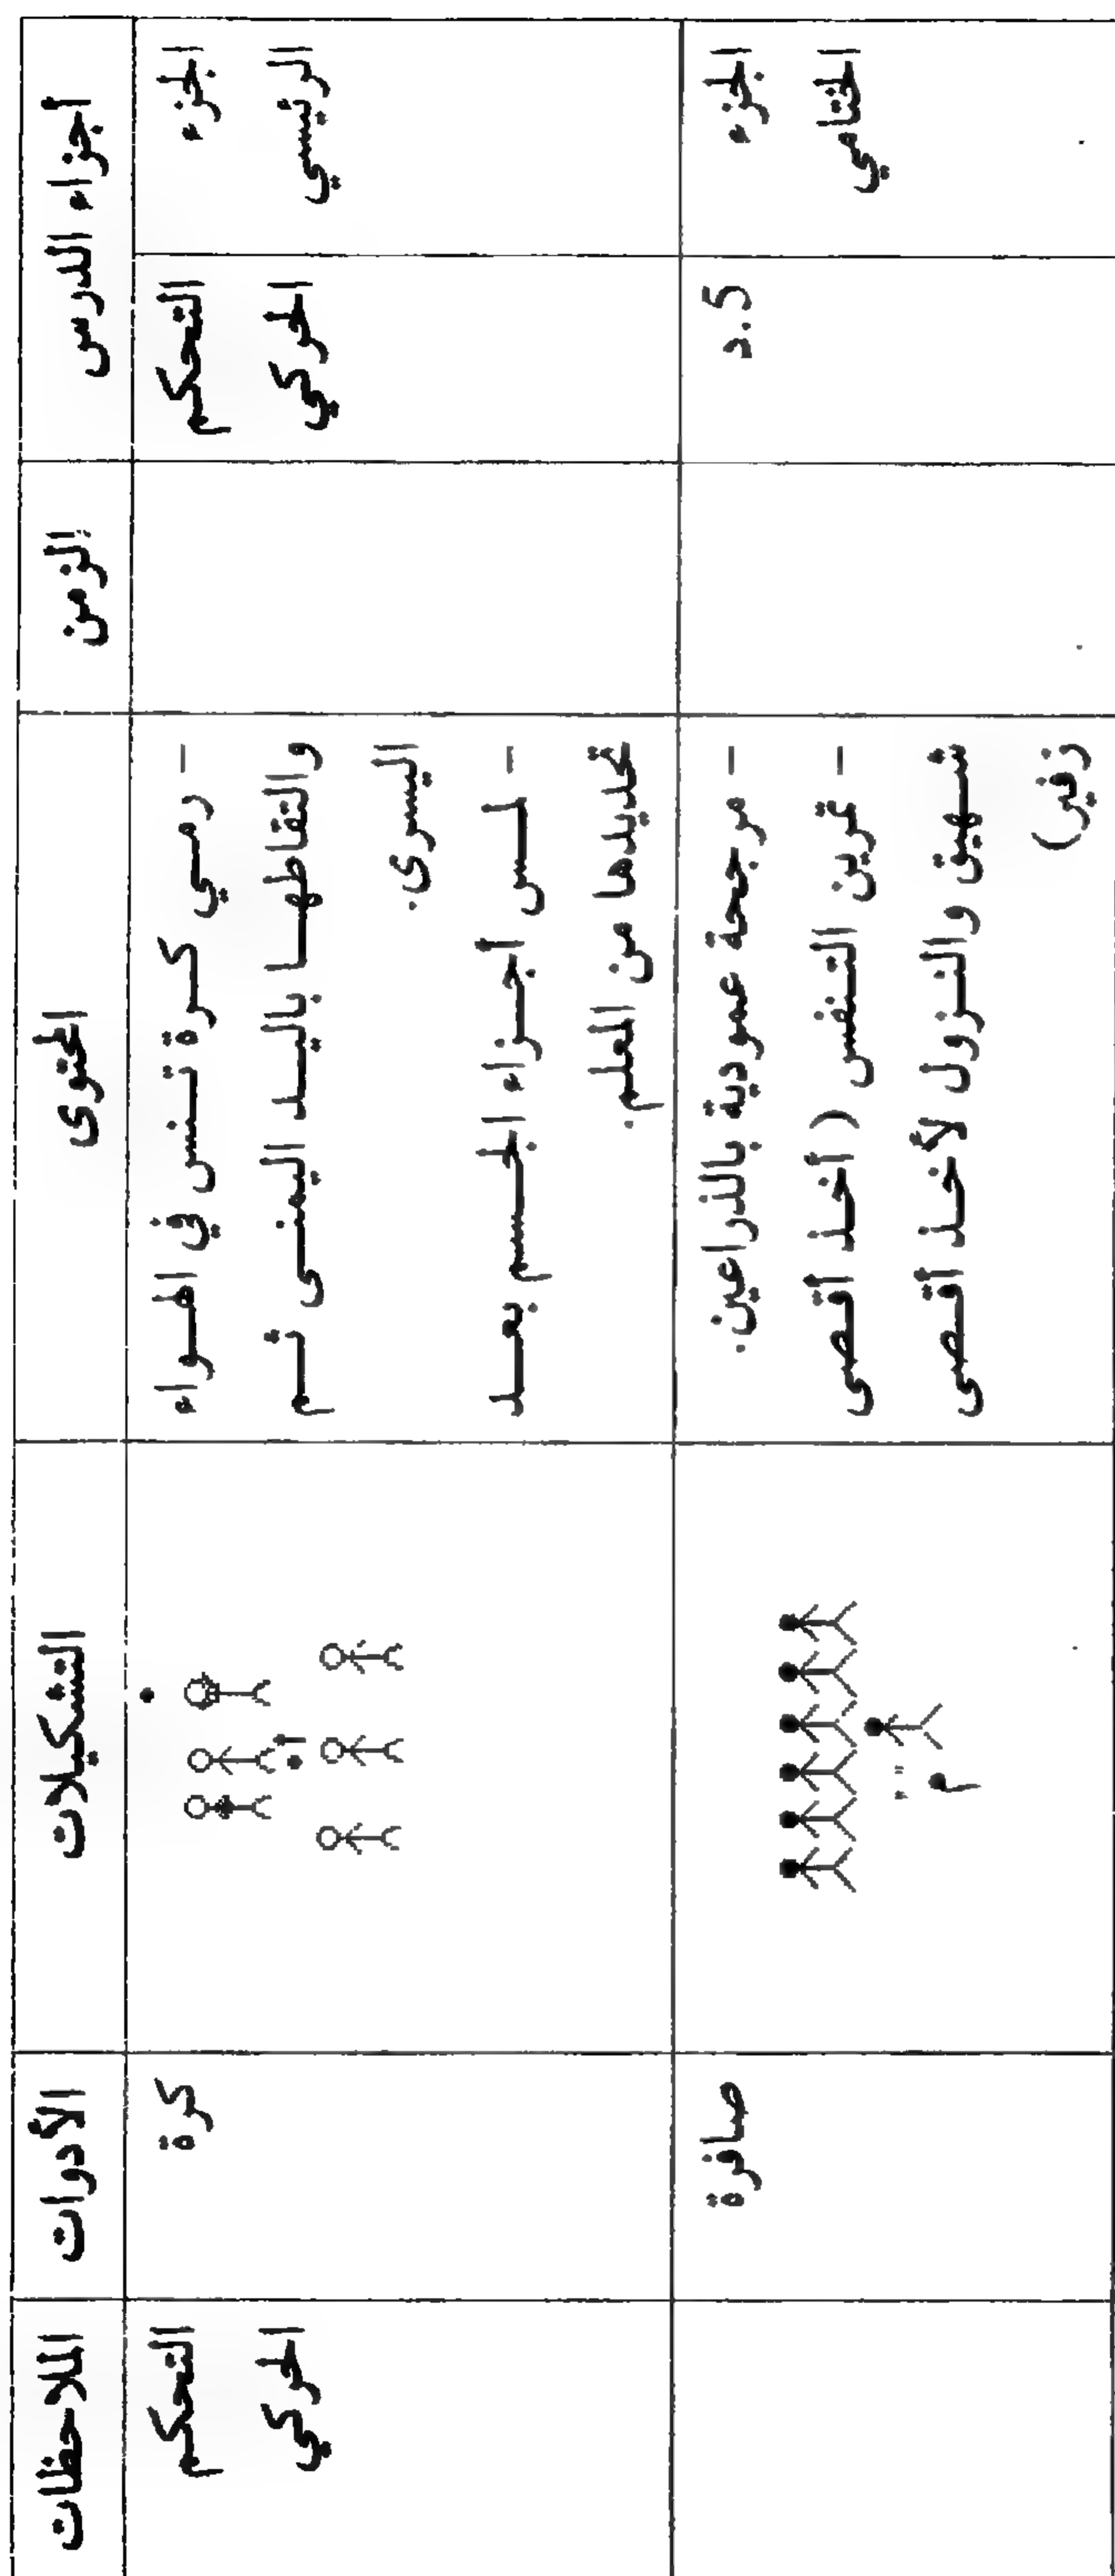 أجزاء الدرس
الزمن
المحتوى
التشكيلات
الأدوات
الملاحظات
الجزء
الرئيسي
التحكم
الحركي
– رمي كرة تنس في الهواء
والتقاطها باليد اليمنى ثم
اليسرى.
– لمس أجزاء الجسم بعد
تحديدها من المعلم.
كرة
التحكم
الحركي
الجزء
الختامي
5.د
– مرجحة عمودية بالذراعين.
– تمرين التنفس (أخذ أقصى
شهيق والنزول لأخذ أقصى
زفير)
م
صافرة